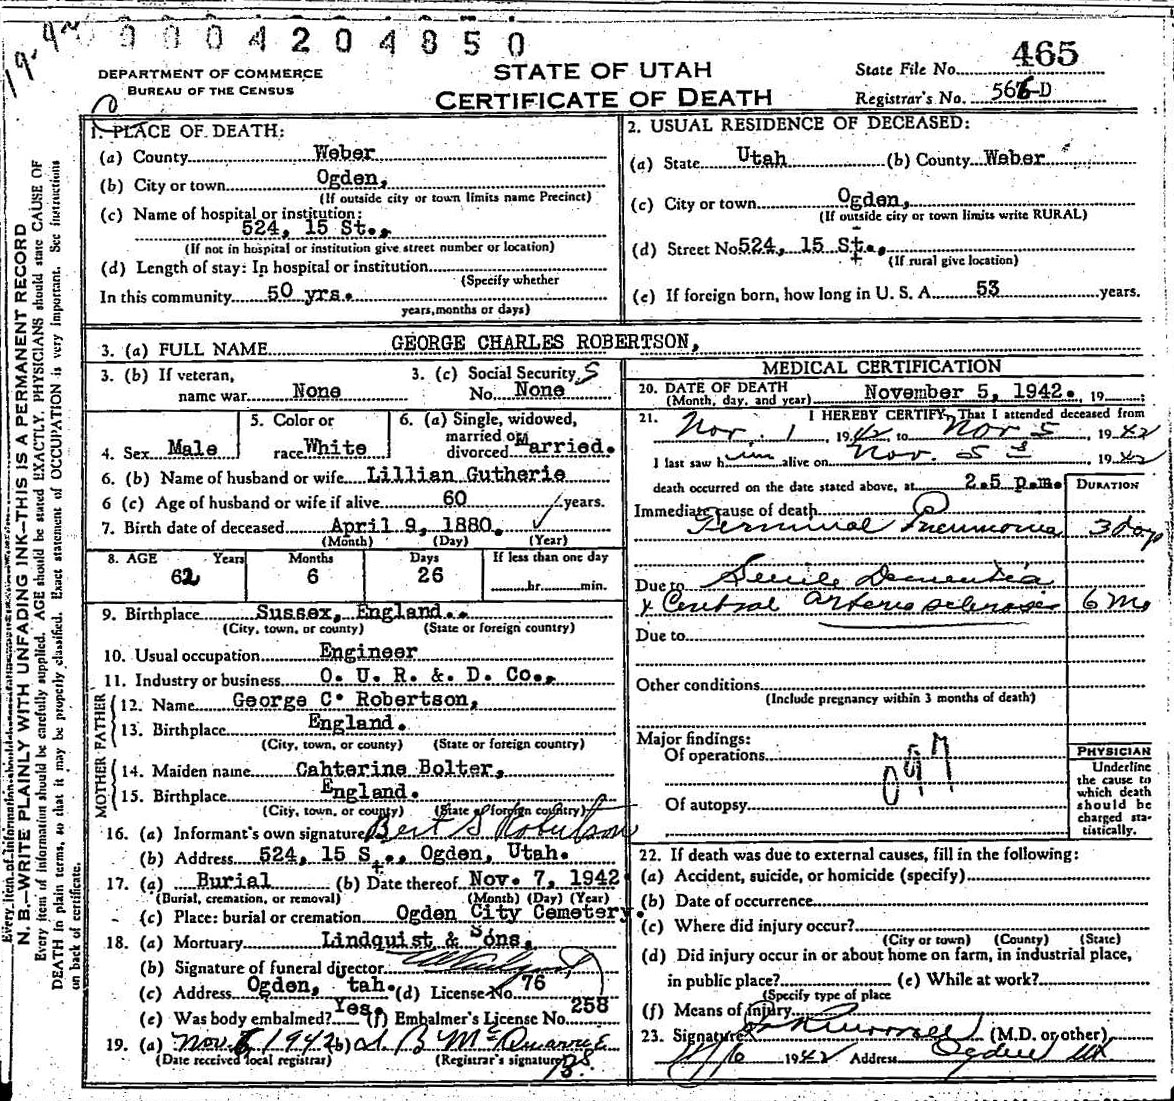 0004204850
465
DEPARTMENT OF COMMERCE
BUREAU OF THE CENSUS
STATE OF UTAH
CERTIFICATE OF DEATH
State File No.
Registrar's No. 566-D
1. PLACE OF DEATH:
(a) County Weber
(b) City or town Ogden,
(If outside city or town limits name Precinct)
(c) Name of hospital or institution:
524, 15 St.,
(If not in hospital or institution give street number or location)
(d) Length of stay: In hospital or institution
(Specify whether
In this community 50 yrs.
years, months or days)
2. USUAL RESIDENCE OF DECEASED:
(a) State Utah (b) County Weber
(c) City or town Ogden,
(If outside city or town limits write RURAL)
(d) Street No. 524, 15 St.,
(If rural give location)
(e) If foreign born, how long in U. S. A. 53 years.
3. (a) FULL NAME GEORGE CHARLES ROBERTSON,
3. (b) If veteran,
name war None
3. (c) Social Security
No. None
4. Sex Male
5. Color or
race White
6. (a) Single, widowed,
married or
divorced Married.
6. (b) Name of husband or wife Lillian Gutherie
6 (c) Age of husband or wife if alive 60 years.
7. Birth date of deceased April 9, 1880.
(Month) (Day) (Year)
8. AGE Years Months Days If less than one day
62 6 26 hr. min.
9. Birthplace Sussex, England.
(City, town, or county) (State or foreign country)
10. Usual occupation Engineer
11. Industry or business O. U. R. & D. Co.,
FATHER
12. Name George C. Robertson,
13. Birthplace England.
(City, town, or county) (State or foreign country)
MOTHER
14. Maiden name Cahterine Bolter,
15. Birthplace England.
(City, town, or county) (State or foreign country)
16. (a) Informant's own signature Bert S Robertson
(b) Address 524, 15 St., Ogden, Utah.
17. (a) Burial (b) Date thereof Nov. 7, 1942
(Burial, cremation, or removal) (Month) (Day) (Year)
(c) Place: burial or cremation Ogden City Cemetery.
18. (a) Mortuary Lindquist & Sons,
(b) Signature of funeral director
(c) Address Ogden, tah. (d) License No. 76
(e) Was body embalmed? Yes. (f) Embalmer's License No. 258
19. (a) Nov. 1942 (b)
(Date received local registrar) (Registrar's signature)
MEDICAL CERTIFICATION
20. DATE OF DEATH November 5, 1942. , 19
(Month, day, and year)
21. I HEREBY CERTIFY, That I attended deceased from
Nov. 1, 1942 to Nov 5, 1942
I last saw him alive on Nov. 5, 1942
death occurred on the date stated above, at 2.5 p.m.
DURATION
Immediate cause of death
Terminal Pneumonia 3 days
Due to Senile Dementia
& Central Arterio sclerosis 6 Mo
Due to
Other conditions
(Include pregnancy within 3 months of death)
Major findings:
Of operations
Of autopsy
PHYSICIAN
Underline
the cause to
which death
should be
charged sta-
tistically.
22. If death was due to external causes, fill in the following:
(a) Accident, suicide, or homicide (specify)
(b) Date of occurrence
(c) Where did injury occur?
(City or town) (County) (State)
(d) Did injury occur in or about home on farm, in industrial place,
in public place? (e) While at work?
(Specify type of place
(f) Means of injury
23. Signature (M.D. or other)
1942 Address Ogden Ut
N. B.—WRITE PLAINLY WITH UNFADING INK—THIS IS A PERMANENT RECORD
Every item of information should be carefully supplied. AGE should be stated EXACTLY. PHYSICIANS should state CAUSE OF
DEATH in plain terms, so that it may be properly classified. Exact statement of OCCUPATION is very important. See instructions
on back of certificate.